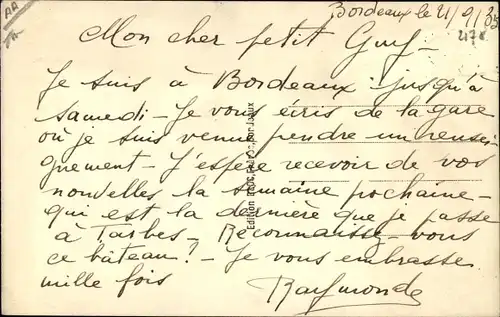 AA
Bordeaux le 21/9/35
Mon cher petit Guy -
Je suis à Bordeaux jusqu'à
samedi - Je vous écris de la gare
où je suis venue prendre un rensei-
gnement - J'espère recevoir de vos
nouvelles la semaine prochaine -
qui est la dernière que je passe
à Tarbes - Reconnaissez-vous
ce bâteau ? - Je vous embrasse
mille fois
Raymonde